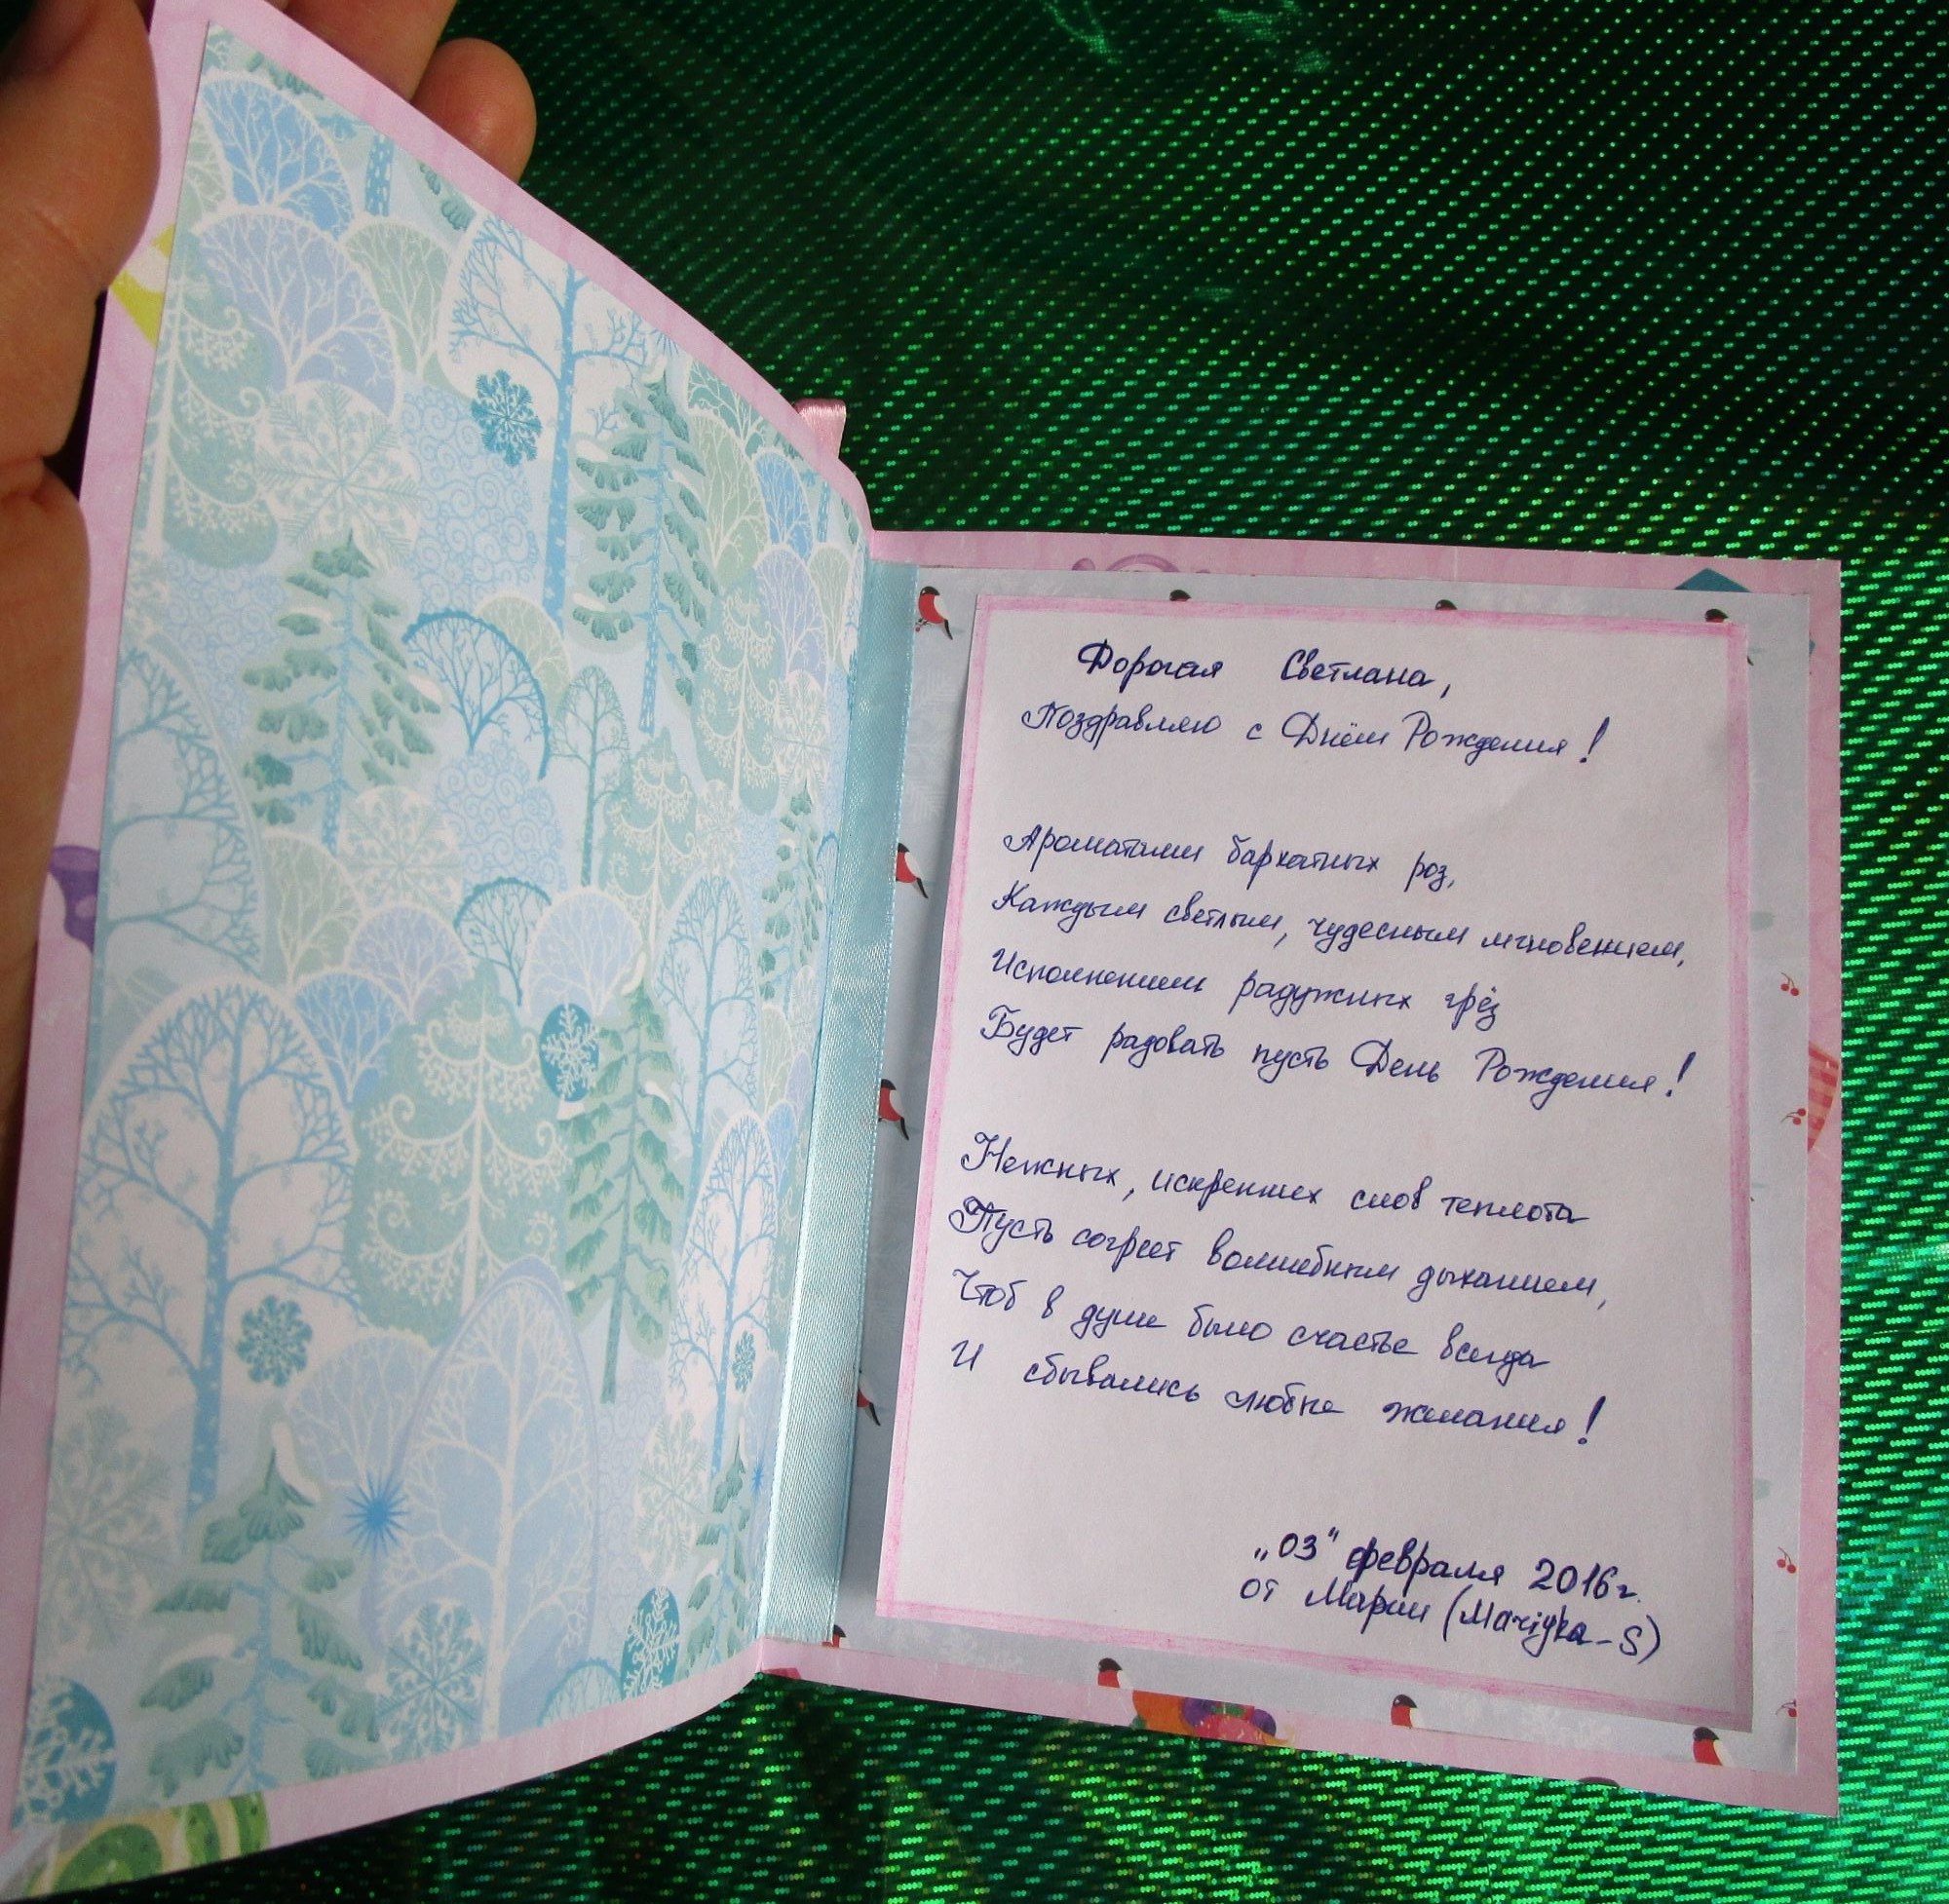 Дорогая Светлана,
Поздравляю с Днём Рождения!
Ароматами бархатных роз,
Каждым светлым, чудесным мгновением,
Исполнением радужных грёз
Будет радовать пусть День Рождения!
Нежных, искренних слов теплота
Пусть согреет волшебным дыханием,
Чтоб в душе было счастье всегда
И сбывались любые желания!
„03" февраля 2016г.
от Марии (Mariyka-S)